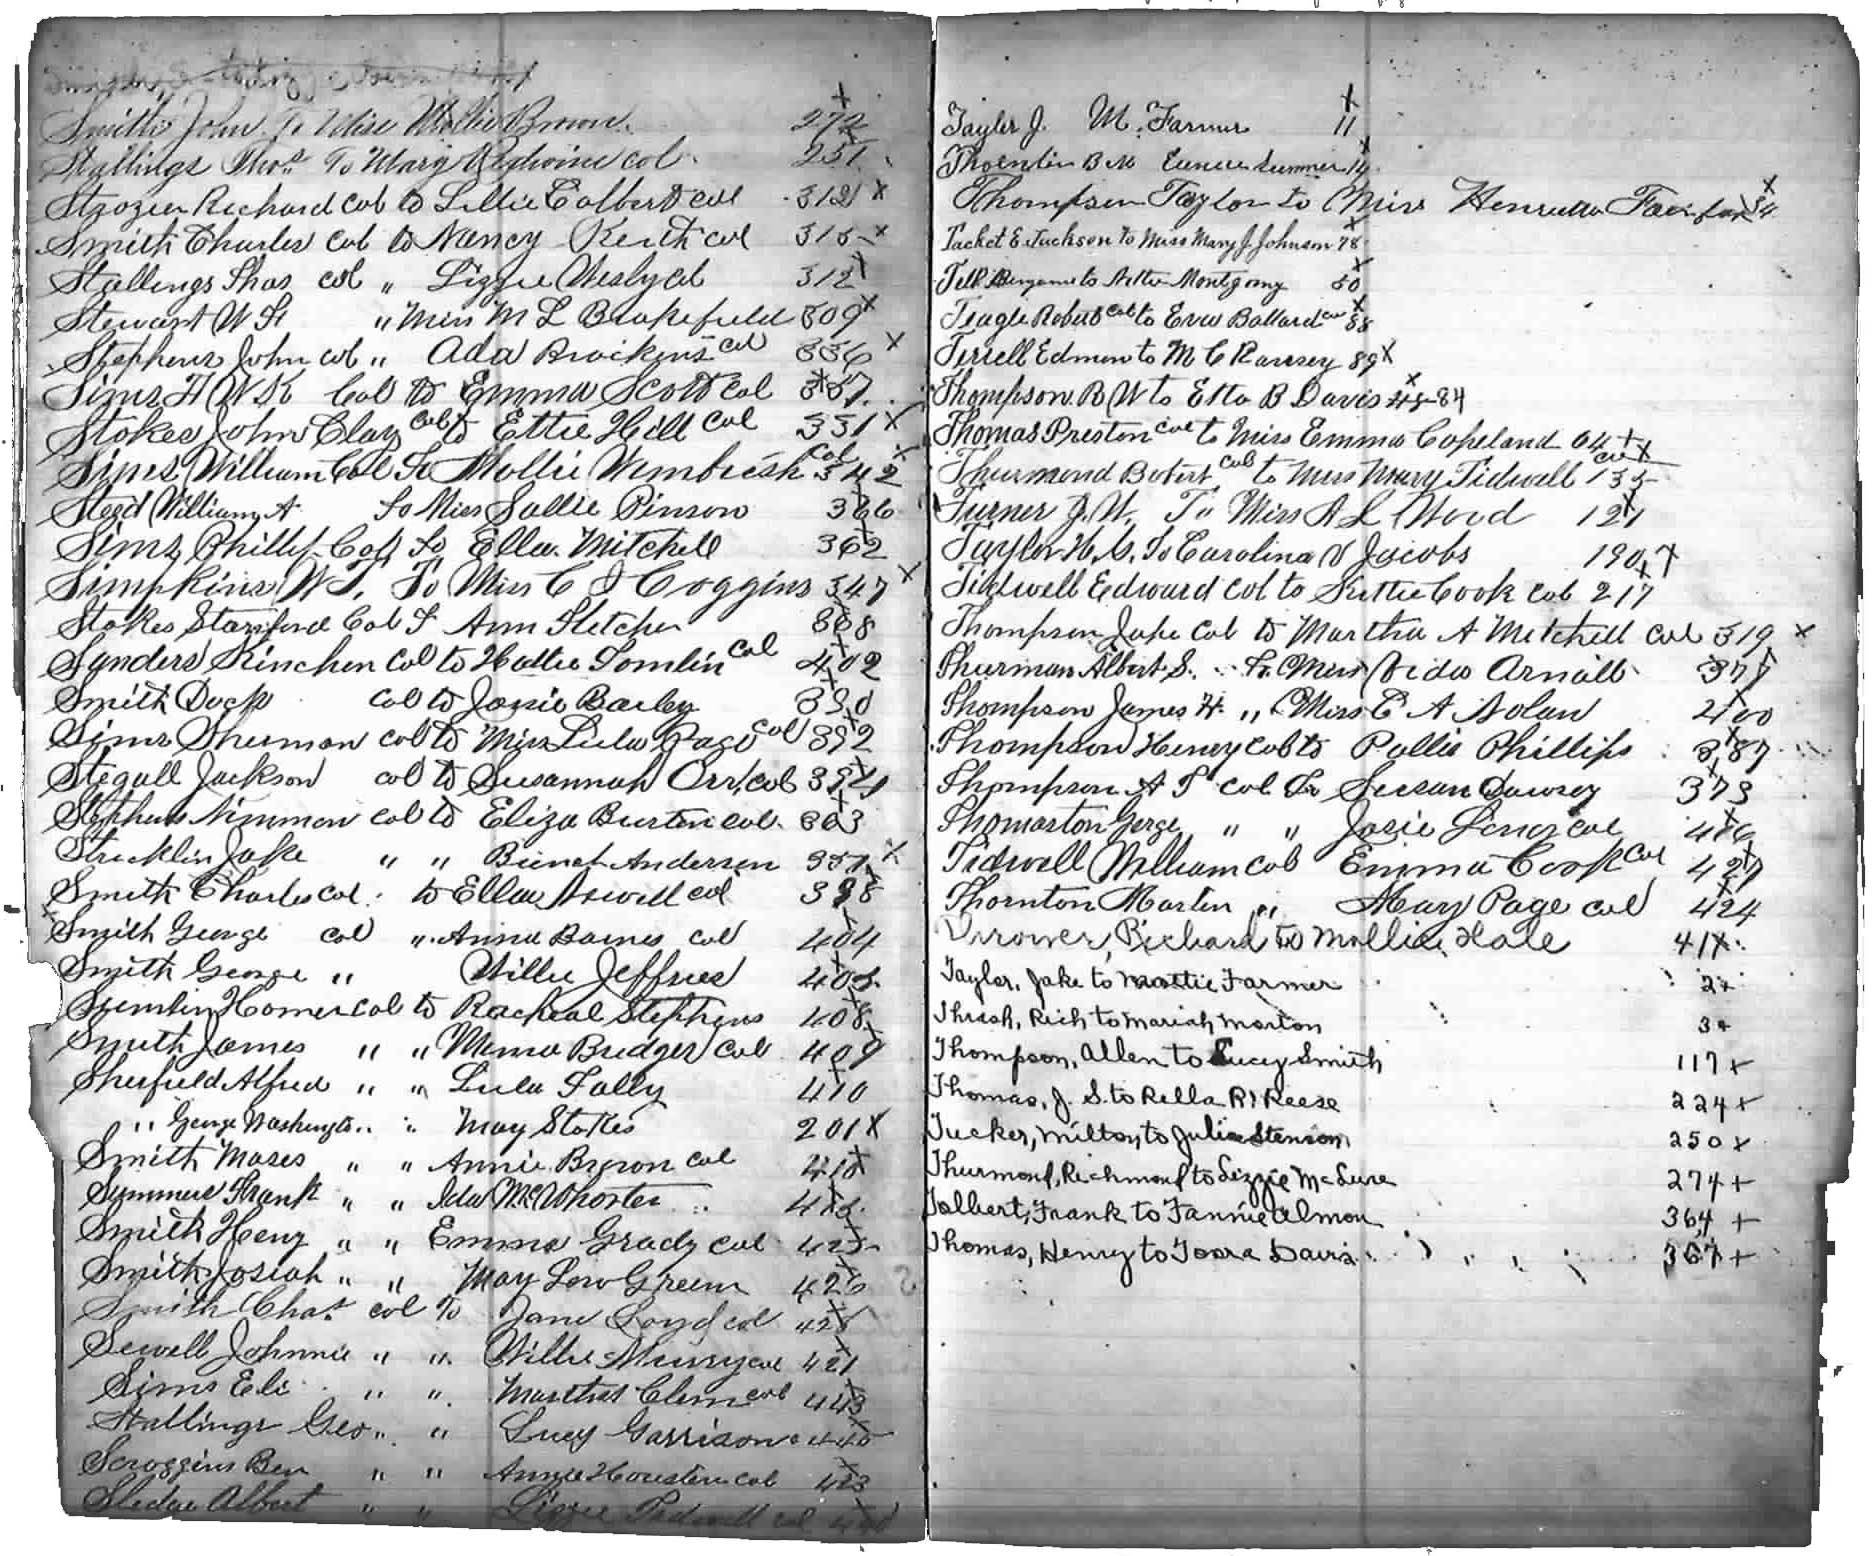 Smith John To Miss Mollie Brown 272
Stallings Thos To Mary Redwine col 251
Strozier Richard col to Lillie Colbert col 312 x
Smith Charles col to Nancy Keith col 315 x
Stallings Thos col " Lizzie Wesly col 312 x
Stewart W H " Miss M L Brakefield 309 x
Stephens John col " Ada Brackens col 336 x
Sims H W K Col to Emma Scott col 337
Stokes John Clay col to Ettie Hill col 331 x
Sims William Col To Mollie Wimbresh col 342
William A To Miss Sallie Pinson 366
Sims Phillip Col To Ella Mitchell 362
Simpkins W T. To Miss C I Coggins 347 x
Stokes Col T Ann Fletcher 368
Sanders Kinchen col to Hattie Tomlin col 402
Smith Dock col to Josie Bailey 390
Sims Sherman col to Miss Lula Page col 392
Stegall Jackson col to Susannah Orr, col
Stephens Nimmon col to Eliza Burten col. 303
Stricklin Jake " " Anderson x
Smith Charles col. to Ella Sewell col 398
Smith George col " Anna Barnes col 404
Smith George " Willie Jeffries 405
Homer col to Racheal Stephens 408
Smith James " " Minna Bridges col 409
Sherfield Alfred " " Lula Fally 410
" George Washington " " May Stokes 201 x
Smith Moses " " Annie Brown col 410
Summers Frank " " Ida McWhorter "
Smith Henry " " Emma Grady col 425
Smith Josiah " " May Low Green 426
Smith Chas. col To Jane Loyd col 428
Sewell Johnnie " " Willie col 421
Sims Eli " " Martha Clem col 443
Stallings Geo " " Lucy Garrison 445
Scroggins Ben " " Annie Housten col 423
Sledge Albert " " Lizzie Tidwell col
Tayler J. M. Farmer 11
Thornton B M Eunice Summer 14
Thompson Taylor to Miss Henrietta Fairfax 34
Tacket E. Jackson to Miss Mary J. Johnson 78
Tell Benjamin to Nettie Montgomy 50
Teagle Robert col to Eva Ballard col 88
Terrell Edmon to M C Ramsey 89 x
Thompson R W to Etta B Davis 84
Thomas Preston col to Miss Emma Copeland 64 x
Thurmond Robert col to Miss Mary Tidwell col 135
Turner J. W. To Miss A L Wood 121
Taylor H. C. To Carolina V Jacobs 190 x
Tidwell Edward col to Kittie Cook col 217
Thompson Jake col to Martha A Mitchell col 319 x
Thurman Albert S. To Miss Vida Arnall 377
Thompson James H. " Miss E A Nolan 400
Thompson Henry col to Pollie Phillips 387
Thompson A T col to Susan Dawsey 373
Thomaston Gorge " " Josie col 416
Tidwell William col Emma Cook col 427
Thornton Martin " Mary Page col 424
Richard to Mollie Hale 41x
Taylor, Jake to Mattie Farmer 2x
Thrash, Rich to Mariah Morton 3x
Thompson, Allen to Lucy Smith 117 x
Thomas, J. S. to Rella R. Reese 224 x
Tucker, Milton, to Julia Stenson 250 x
Thurmond, Richmond to Lizzie McLure 274 +
Tolbert, Frank to Fannie Almon 364 +
Thomas, Henry to Toora Davis 367 +